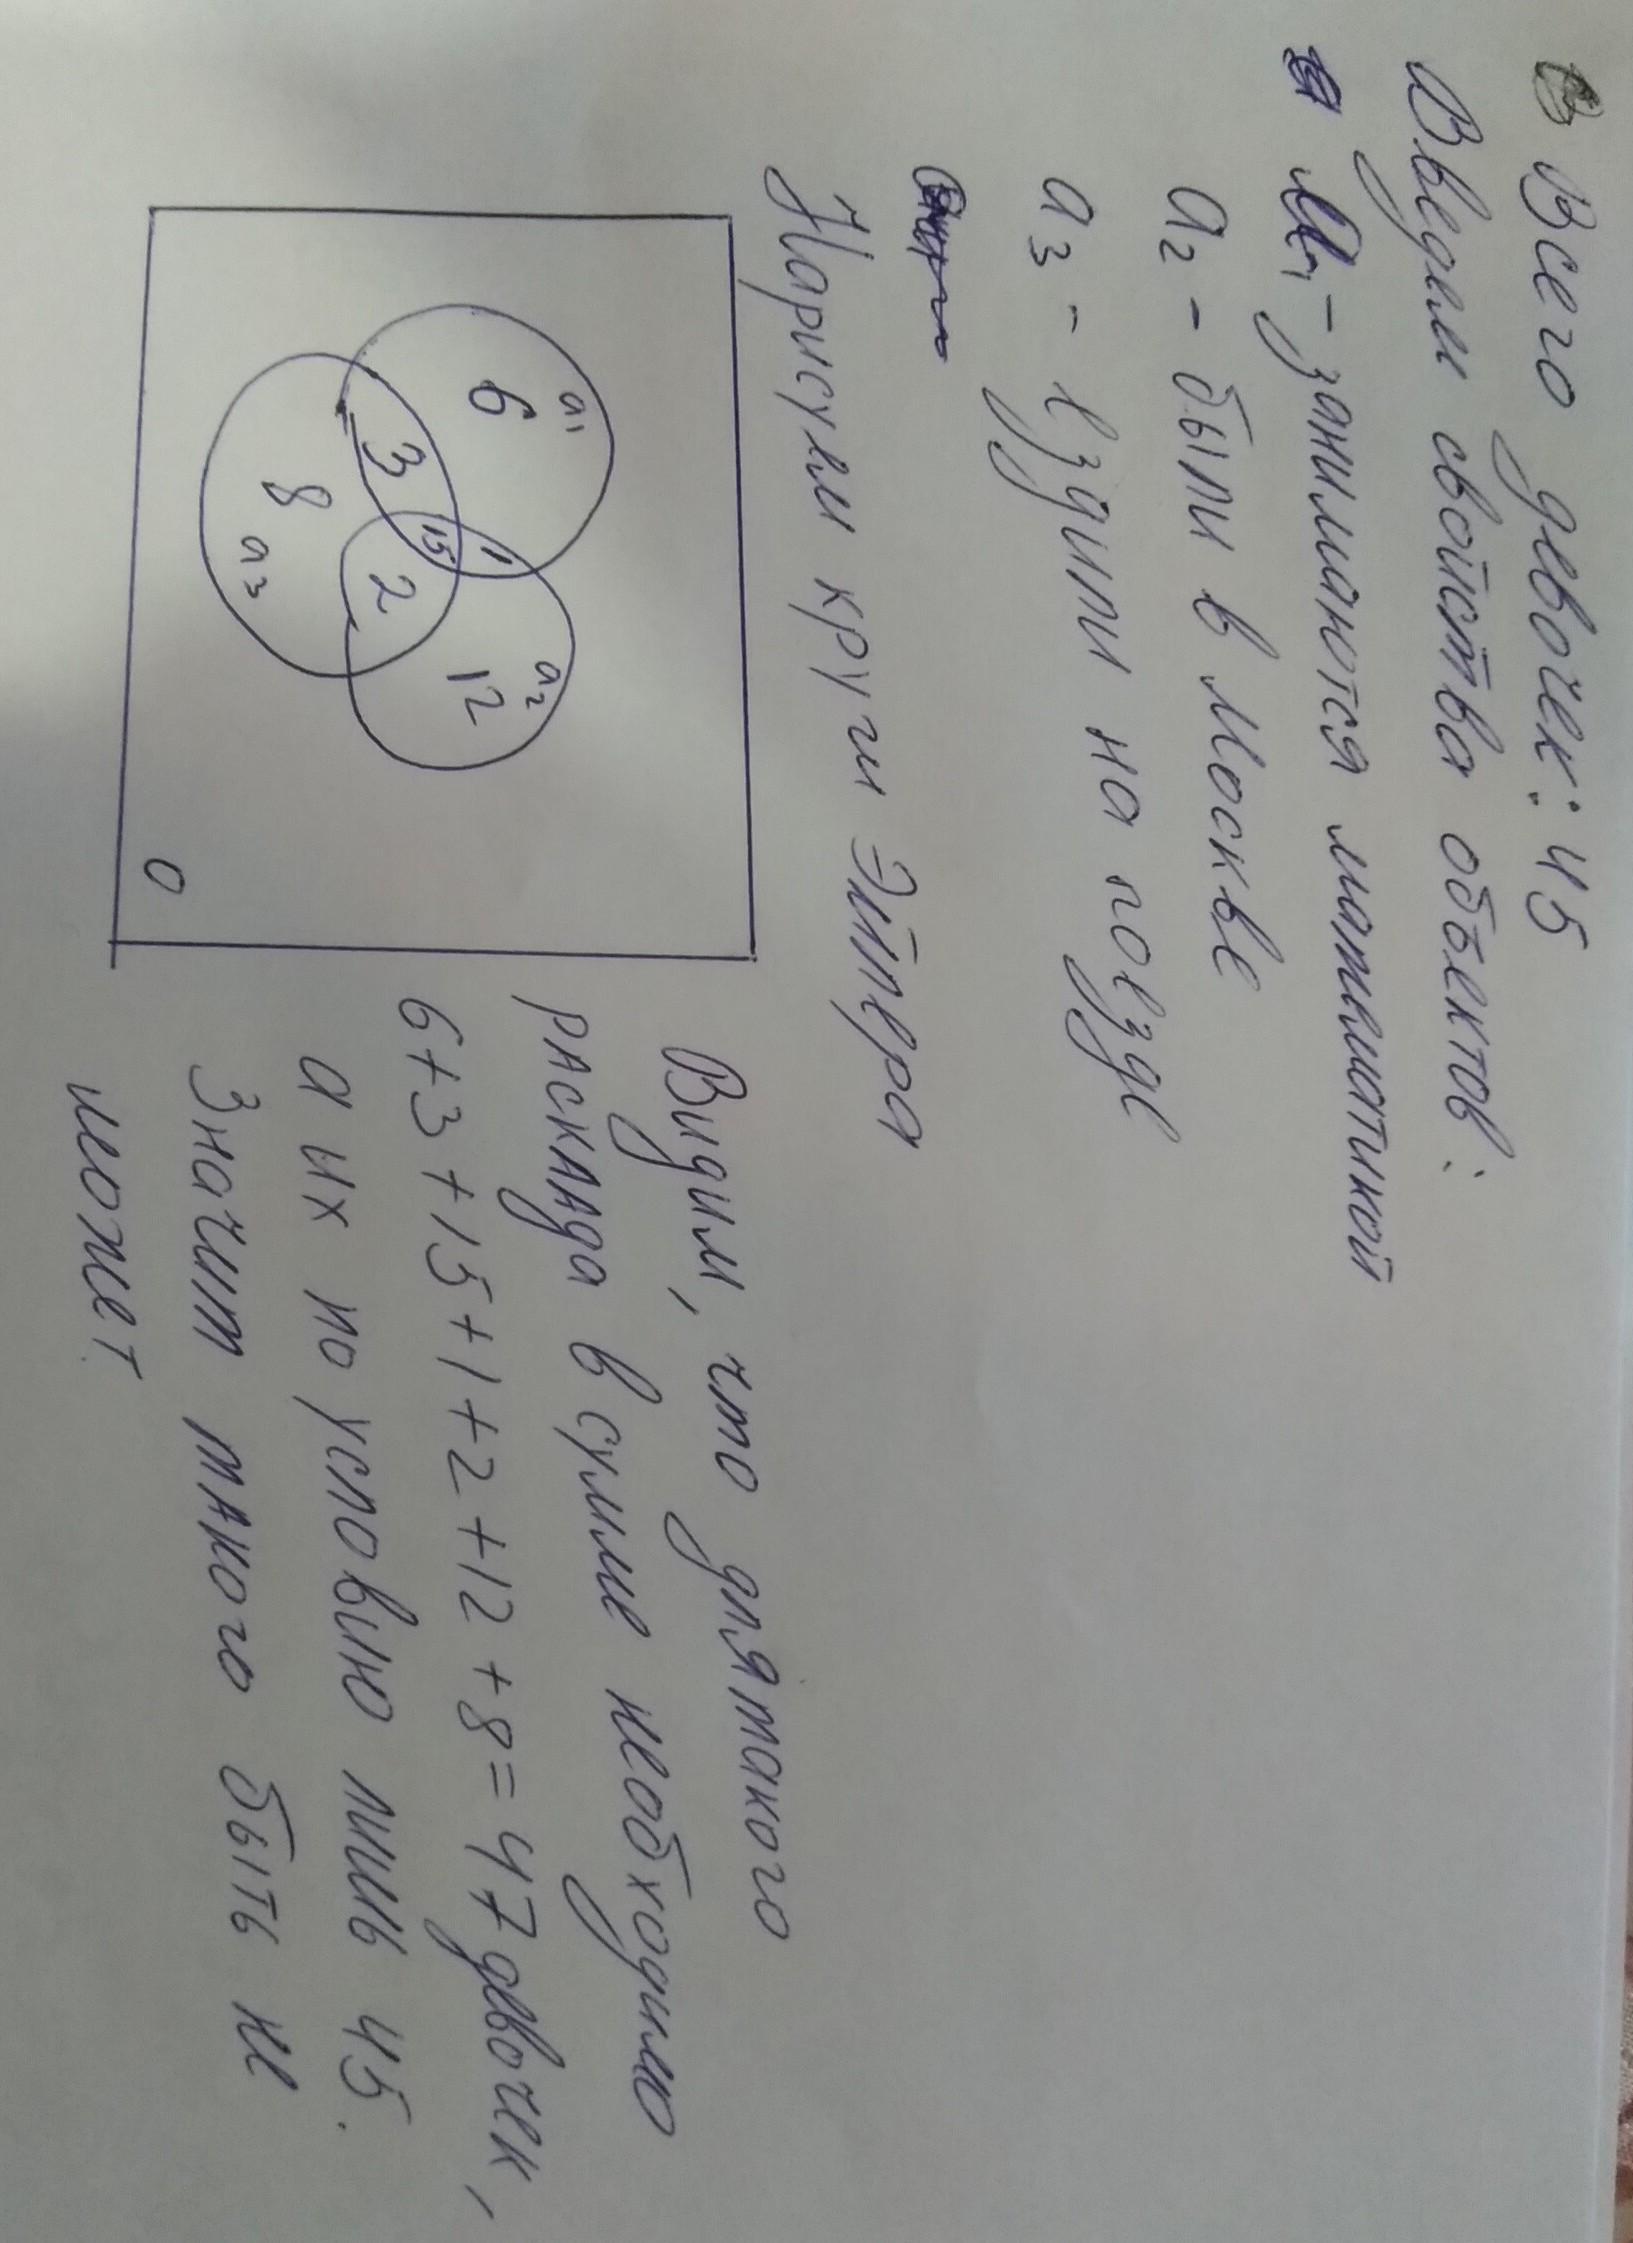 Всего девочек: 45
Введем свойства объектов:
a1 - занимаются математикой
a2 - были в Москве
a3 - ездили на поезде
Нарисуем круги Эйлера
a1
6
1
a2
12
3
15
2
8
a3
0
Видим, что для такого
расклада в сумме необходимо
6+3+15+1+2+12+8=47 девочек,
а их по условию лишь 45.
Значит такого быть не
может.